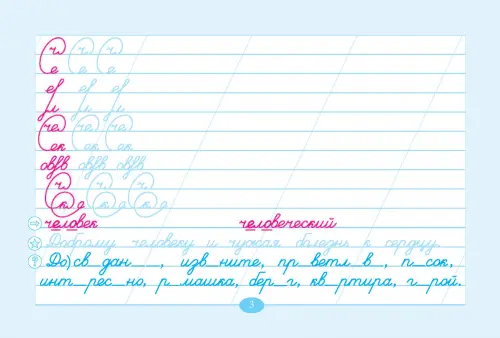 ч ч ч
е е е
ef ef ef
м м м
че че че
ек ек ек
овfв овfв овfв
ч ч ч
к а к а к а
человек человеческий
Доброму человеку и чужая болезнь к сердцу.
До)св_дан__, изв_ните, пр_ветл_в_, п_сок,
инт_рес_но, р_машка, бер_г, кв_ртира, г_рой.
3